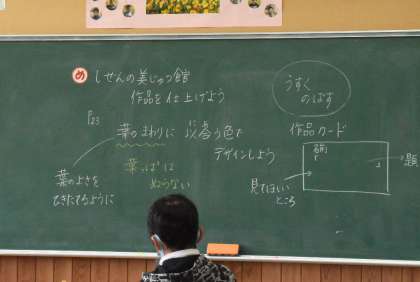 め しぜんの美じゅつ館
作品を仕上げよう
P23
葉のまわりに 合う色で
デザインしよう
葉っぱは
ぬらない
葉のよさを
ひきたてるように
うすく
のばす
作品カード
題
見てほしい
ところ